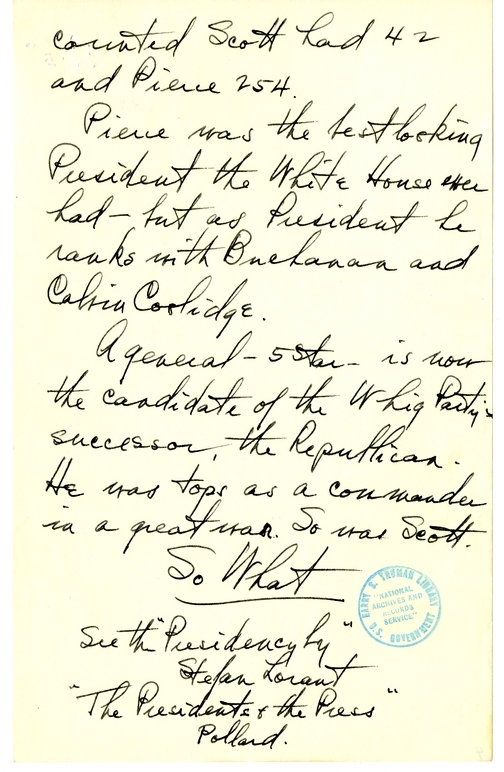 counted Scott had 42
and Pierce 254.
Pierce was the best looking
President the White House ever
had - but as President he
ranks with Buchanan and
Calvin Coolidge.
A general - 5 star - is now
the candidate of the Whig Party's
successor, the Republican.
He was tops as a commander
in a great war. So was Scott.
So What
HARRY S. TRUMAN LIBRARY
"NATIONAL
ARCHIVES AND
RECORDS
SERVICE"
U.S. GOVERNMENT
See the "Presidency by"
Stefan Lorant
"The Presidents & the Press"
Pollard.